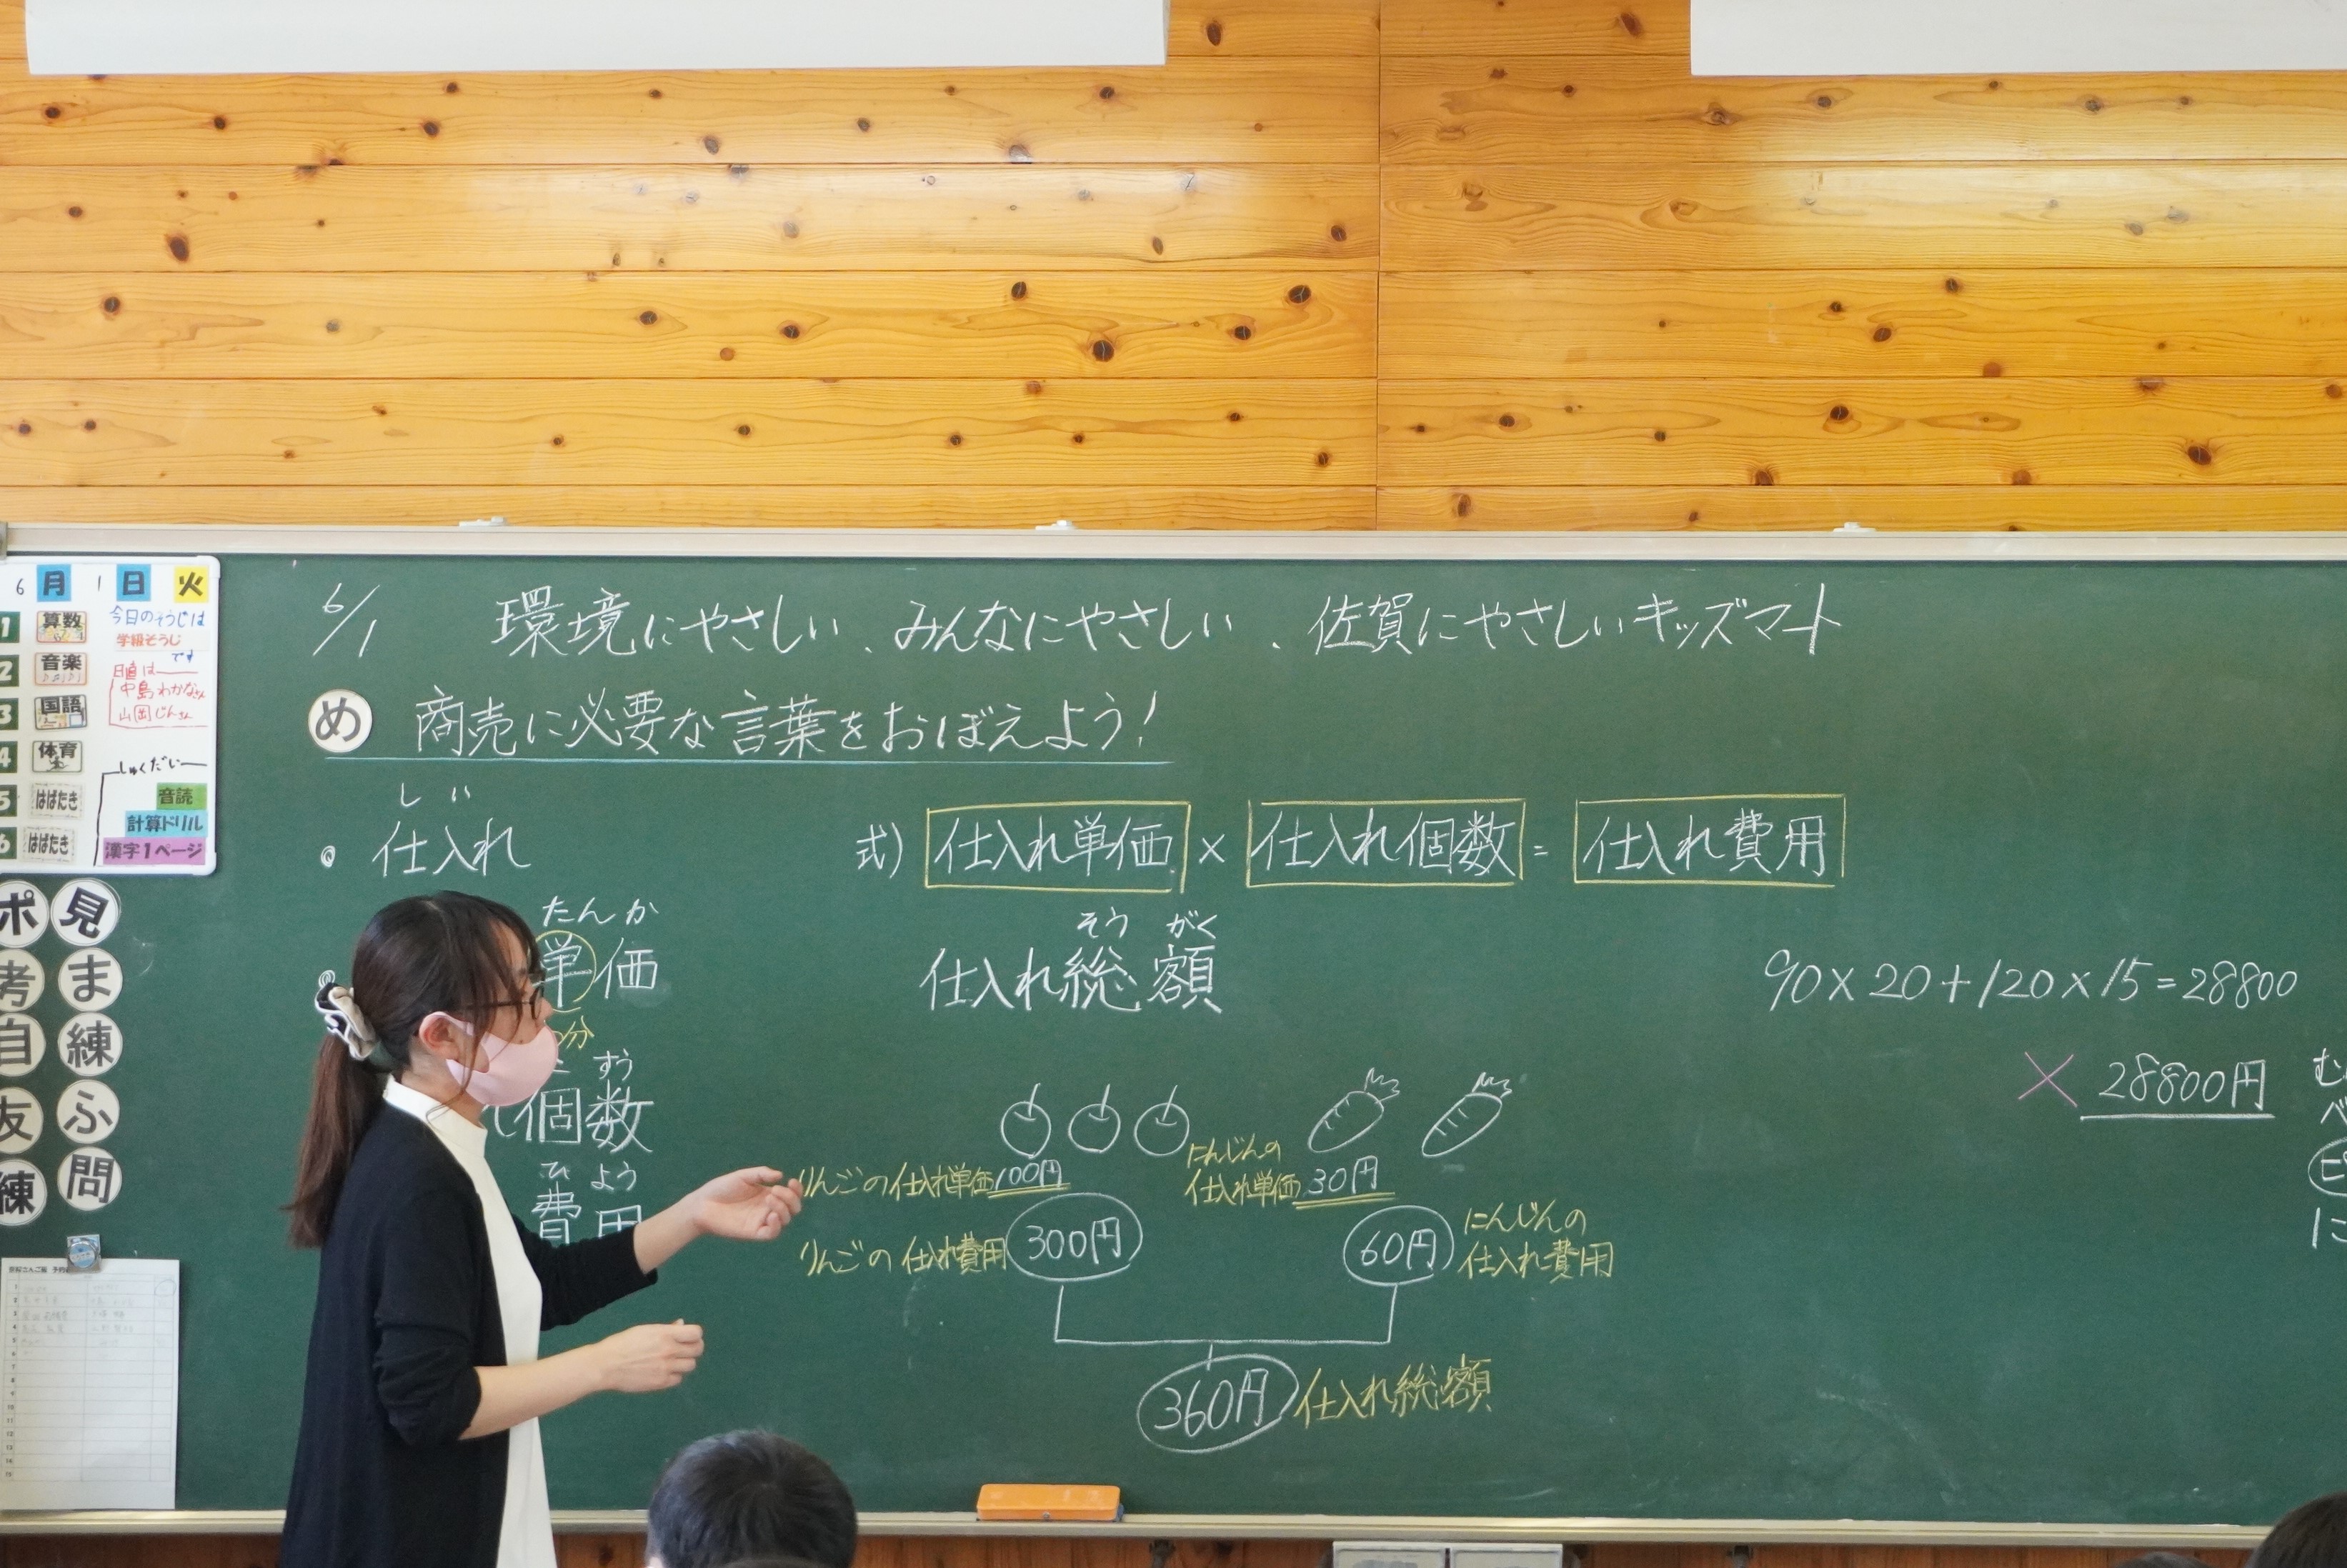 6月1日火
1 算数
2 音楽
3 国語
4 体育
5 はばたき
6 はばたき
今日のそうじは
学級そうじ
です
日直は
中島わかなさん
山岡じんさん
しゅくだい
音読
計算ドリル
漢字1ページ
ポ 見
考 ま
自 練
友 ふ
練 問
6/1 環境にやさしい、みんなにやさしい、佐賀にやさしいキッズマート
め 商売に必要な言葉をおぼえよう!
しい
仕入れ
たんか
単価
分
すう
個数
ひよう
費用
式) 仕入れ単価 × 仕入れ個数 = 仕入れ費用
そうがく
仕入れ総額
りんごの仕入れ単価 100円
にんじんの
仕入れ単価 30円
りんごの仕入れ費用 300円
60円 にんじんの
仕入れ費用
360円 仕入れ総額
90×20+120×15=28800
× 28800円